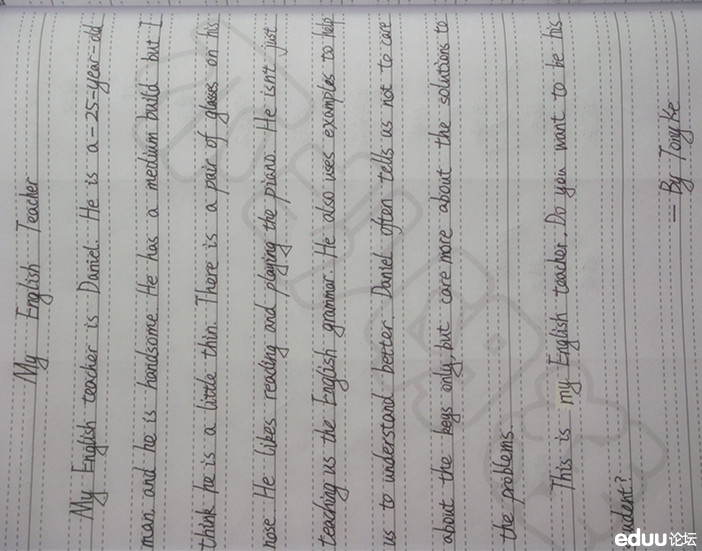 My English Teacher
My English teacher is Daniel. He is a-25-year-old
man, and he is handsome. He has a medium build but I
think he is a little thin. There is a pair of glasses on his
nose. He likes reading and playing the piano. He isn't just
teaching us the English grammar. He also uses examples to help
us to understand better. Daniel often tells us not to care
about the keys only, but care more about the solutions to
the problems.
This is my English teacher. Do you want to be his
udent?
— By Tony Ke
eduu论坛